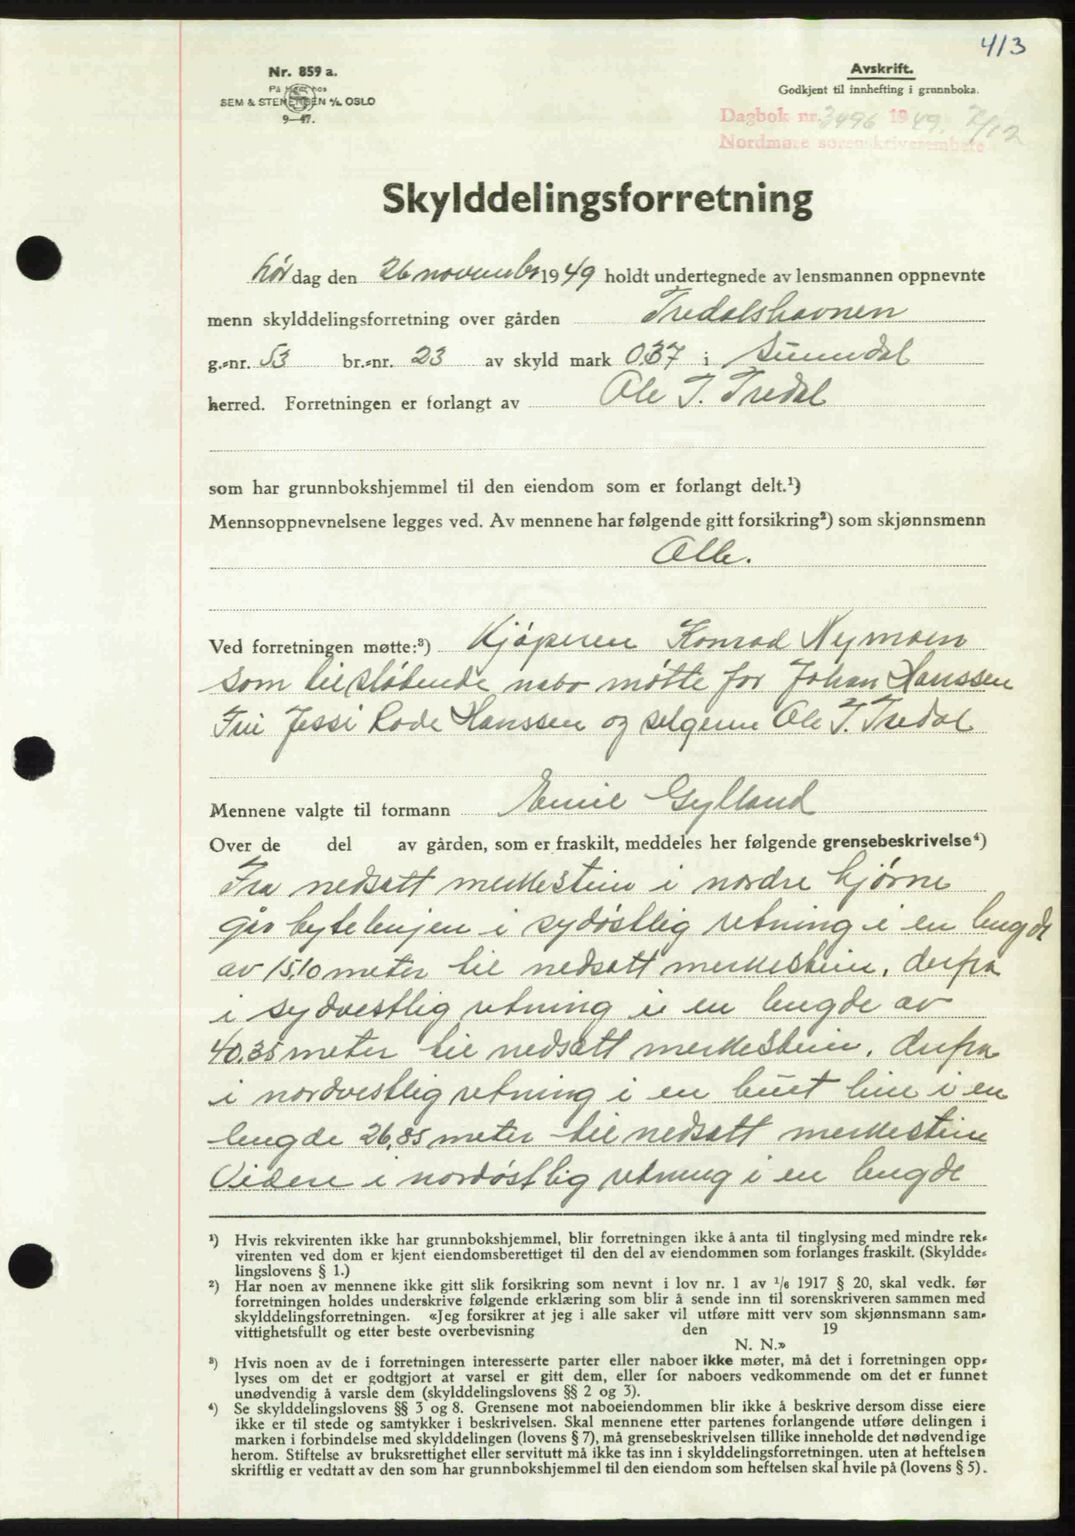 413
Nr. 859 a.
På lager hos
SEM & STENERSEN A/S. OSLO
9—47.
Avskrift.
Godkjent til innhefting i grunnboka.
Dagbok nr. 3496 1949. 7/12
Nordmøre sorenskriverembete
Skylddelingsforretning
Lørdag den 26 november 1949 holdt undertegnede av lensmannen oppnevnte
menn skylddelingsforretning over gården Tredalshavnen
g.=nr. 53 br.=nr. 23 av skyld mark 0.37 i Sunndal
herred. Forretningen er forlangt av Ole T. Tredal
som har grunnbokshjemmel til den eiendom som er forlangt delt.¹)
Mennsoppnevnelsene legges ved. Av mennene har følgende gitt forsikring²) som skjønnsmenn
Alle.
Ved forretningen møtte:³) Kjöperen Konrad Nymoen
som tilstötende nabo mötte for Johan Hanssen
Fru Jessi Rode Hanssen og selgeren Ole T. Tredal
Mennene valgte til formann Emil Gylland
Over de del av gården, som er fraskilt, meddeles her følgende grensebeskrivelse⁴)
Fra nedsatt merkestein i nordre hjörne
går bytelinjen i sydöstlig retning i en lengde
av 15,10 meter til nedsatt merkestein, derfra
i sydvestlig retning i en lengde av
40,35 meter til nedsatt merkestein, derfra
i nordvestlig retning i en buet linie i en
lengde 26,85 meter til nedsatt merkestein
Videre i nordöstlig retning i en lengde
¹) Hvis rekvirenten ikke har grunnbokshjemmel, blir forretningen ikke å anta til tinglysing med mindre rek=
virenten ved dom er kjent eiendomsberettiget til den del av eiendommen som forlanges fraskilt. (Skyldde=
lingslovens § 1.)
²) Har noen av mennene ikke gitt slik forsikring som nevnt i lov nr. 1 av 1/6 1917 § 20, skal vedk. før
forretningen holdes underskrive følgende erklæring som blir å sende inn til sorenskriveren sammen med
skylddelingsforretningen. «Jeg forsikrer at jeg i alle saker vil utføre mitt verv som skjønnsmann sam=
vittighetsfullt og etter beste overbevisning den 19
N. N.»
³) Hvis noen av de i forretningen interesserte parter eller naboer ikke møter, må det i forretningen opp=
lyses om det er godtgjort at varsel er gitt dem, eller for naboers vedkommende om det er funnet
unødvendig å varsle dem (skylddelingslovens §§ 2 og 3).
⁴) Se skylddelingslovens §§ 3 og 8. Grensene mot naboeiendommen blir ikke å beskrive dersom disse eiere
ikke er til stede og samtykker i beskrivelsen. Skal mennene etter partenes forlangende utføre delingen i
marken i forbindelse med skylddelingen (lovens § 7), må grensebeskrivelsen tillike inneholde det nødvendige
herom. Stiftelse av bruksrettighet eller servitutt må ikke tas inn i skylddelingsforretningen. uten at heftelsen
skriftlig er vedtatt av den som har grunnbokshjemmel til den eiendom som heftelsen skal hvile på (lovens § 5).